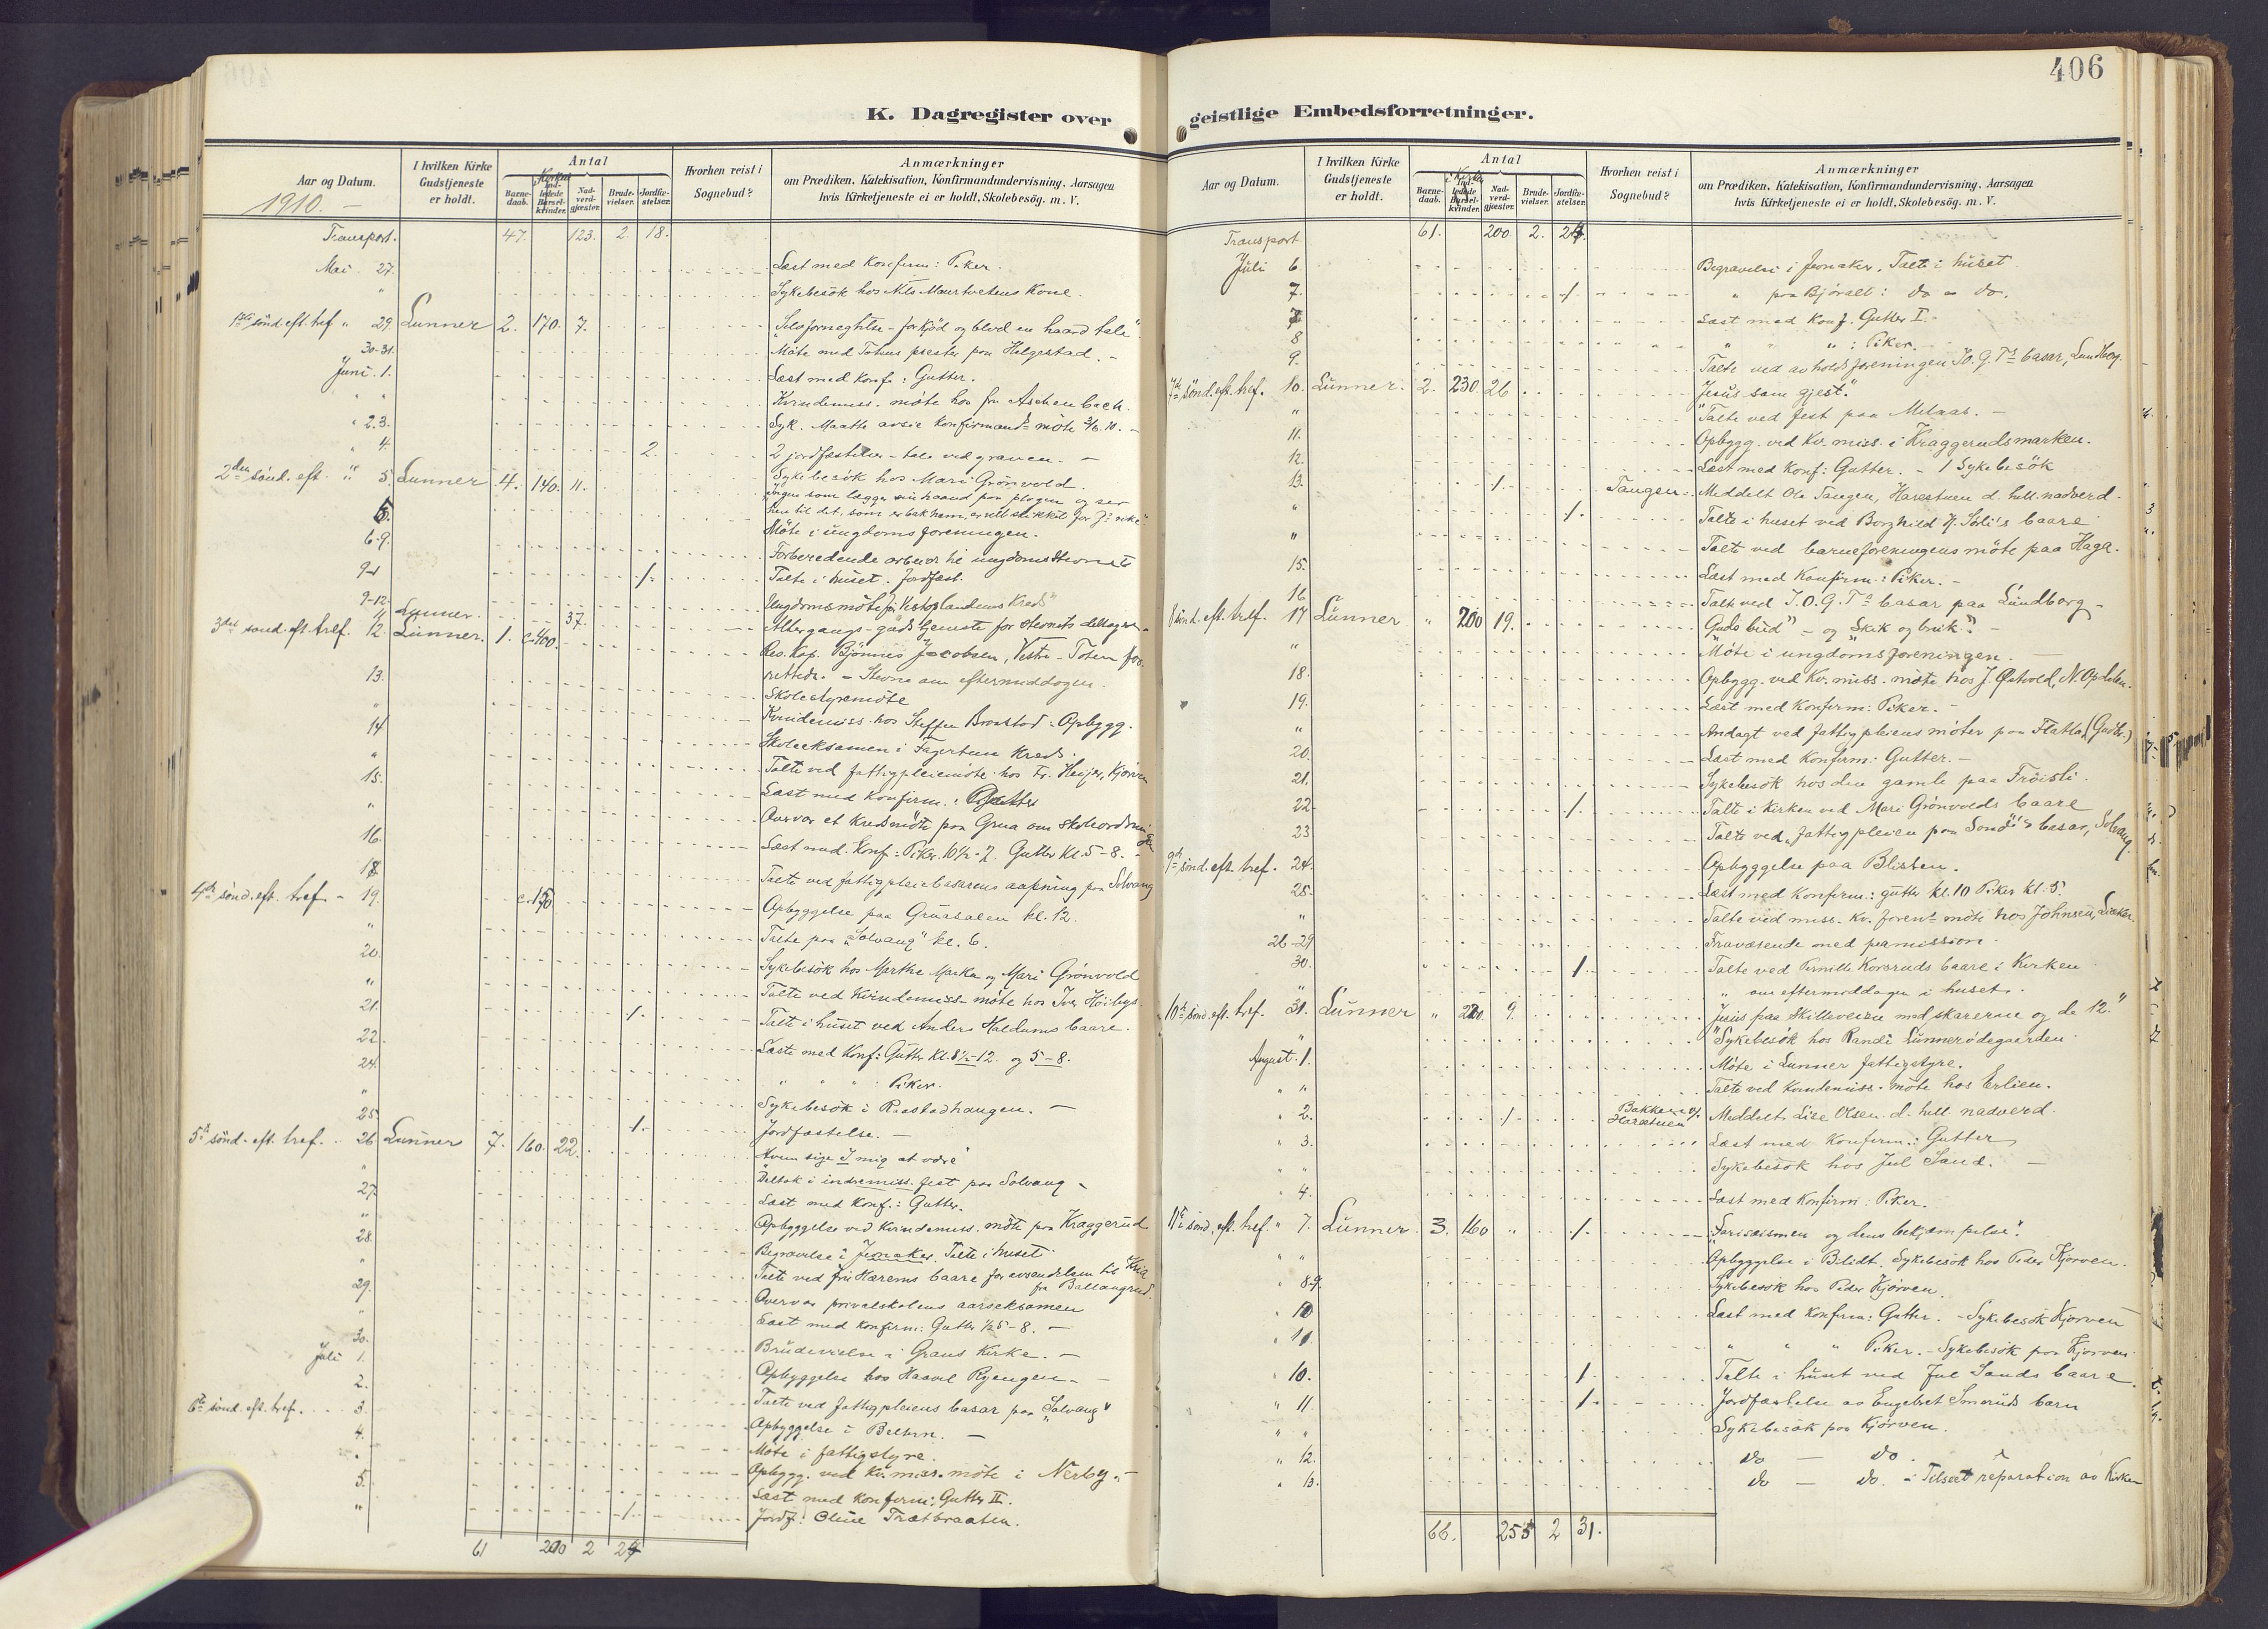 406
K. Dagregister over
Aar og Datum.
I hvilken Kirke Gudstjeneste er holdt.
Antal
Barne-daab.
Ind-ledede Barsel-kvinder.
Nad-verd-gjæster.
Brude-vielser.
Jordfæ-stelser.
Hvorhen reist i Sognebud?
Anmærkninger
om Prædiken, Katekisation, Konfirmandundervisning, Aarsagen
hvis Kirketjeneste ei er holdt, Skolebesög. m. V.
1910. —
Transport. 47. 123. 2. 18.
Mai 27. Læst med Konfirm: Piker.
" Sykebesök hos Nils Kone.
1ste sönd. eft. tref. " 29. Lunner 2. 170. 7. Selvfornegtelse - for kjöd og blod en haard tale".
30-31. Möte med Totens prester paa Helgestad. -
Juni. 1. Læst med Konf: Gutter.
" " Kvindemiss. möte hos fru Aschenbach.
" 2.3. Syk. Maatte avsie Konfirmand möte 3/6.10. -
" 4. 2. 2 jordfæstelser - tale ved graven. -
2den sönd. eft. " 5. Lunner 4. 140. 11. Sykebesök hos Mari Grönvold.
"Ingen som lægger sin haand paa plogen og ser
hen til det, som er bak ham, er vel skikket for
5. Möte i ungdomsforeningen.
6-9. Forberedende arbeide til ungdomsstevnet
9 1. Talte i huset. Jordfæst.
9-12. Ungdomsmöte for Vestoplandenes Kreds"
11 Lunner. 37. Altergangs-gudstjeneste for stevnets deltagere.
3die sönd. eft. tref. 12. Lunner. 1. c. 400. Res. Kap. Bjönnes Jacobsen, Vestre-Toten for-
rettede. - Stevne om eftermiddagen.
13. Skolestyremöte
" Kvindemiss. hos Steffen Brastad: Opbygg.
14 Skoleeksamen i Fagertun Kreds.
" Talte ved fattigpleiemöte hos Fr. Heijer, Kjörven
15. Læst med Konfirm.: Gutter
" Overvar et Kredsmöte paa Grua om skoleordningen
16. Læst med Konf: Piker 10½-2. Gutter Kl. 5-8. -
18 Talte ved fattigpleiebasarens aapning paa Solvang
4de sönd. eft. tref. - 19. c. 150 Opbyggelse paa Gruasalen kl. 12.
" Talte paa "Solvang" kl. 6.
20. Sykebesök hos Marthe Marka og Mari Grönvold
" Talte ved Kvindemiss. möte hos Iver Höibye.
21. 1. Talte i huset ved Anders Haldums baare.
22. Læste med Konf: Gutter kl. 8½-12. og 5-8.
24. " " " : Piker.
" Sykebesök i Raastadhaugen. -
25. 1. Jordfæstelse. -
5te sönd. eft. tref. .. 26 Lunner 7. 160. 22. Hvem sige I mig at være"
" Deltok i indremiss. fest paa Solvang -
27. Læst med Konf.: Gutter.
" Opbyggelse ved Kvindemiss. möte paa Kraggerud
28. Begravelse i Jevnaker. Talte i huset.
" Talte ved fru Hærems baare for avsendelsen til Kria
fra Ballangrud.
29. Overvar privatskolens aarseksamen
" Læst med Konfirm: Gutter ½5-8. -
30. Brudevielse i Grans Kirke. -
Juli 1. Opbyggelse hos Haavel Ryengen. -
2. Talte ved fattigpleiens basar paa "Solvang"
6te sönd. eft. tref. ... 3. Opbyggelse i . -
4. Möte i fattigstyre.
" Opbygg. ved Kv. miss. möte i Nerby. -
5. Læst med Konfirm: Gutter II.
" 1. Jordf: Oline Trætbraaten.
61 200 2 24
geistlige Embedsforretninger.
Aar og Datum.
I hvilken Kirke Gudstjeneste er holdt.
Antal
Barne-daab.
Ind-ledede Barsel-kvinder.
Nad-verd-gjæster.
Brude-vielser.
Jordfæ-stelser.
Hvorhen reist i Sognebud?
Anmærkninger
om Prædiken, Katekisation, Konfirmandundervisning, Aarsagen
hvis Kirketjeneste ei er holdt, Skolebesög. m. V.
Transport 61. 200. 2. 24.
Juli 6. Begravelse i Jevnaker. Talte i huset
7. 1. " paa Björalt: do - do.
7 Læst med Konf. Gutter I. -
8 " " " : Piker.
9. Talte ved avholdsforeningen I.O.G.Ts basar, Lundborg.
7de sönd. eft. tref. 10. Lunner. 2. 230. 26 Jesus som gjest".
" Talte ved fest paa Melaas. -
11. Opbygg. ved Kv. miss. i Kraggerudsmarken.
12. Læst med Konf: Gutter. - 1 Sykebesök
13. 1. Tangen Meddelt Ole Tangen, Harestuen d. hell. nadverd.
" 1. Talte i huset ved Borghild H. Sörlis baare
" Talte ved barneforeningens möte paa Haga.
15. Læst med Konfirm: Piker. -
16 Talte ved I.O.G.Ts basar paa Lundborg -
8 sönd. eft. tref. 17 Lunner " 200 19. Guds bud" - og "Skik og bruk". -
" Möte i ungdomsforeningen. -
18. Opbygg. ved Kv. miss. möte hos J. Östvold, N. Opdalen.
19. Læst med Konfirm: Piker. -
" Andagt ved fattigpleiens möter paa Flatla, (Gudbr.)
20. Læst med Konfirm: Gutter. -
21. Sykebesök hos den gamle paa Tröisli.
22. 1. Talte i Kirken ved Mari Grönvolds baare
23 Talte ved fattigpleien paa basar, Solvang.
9de sönd. eft. tref. 24. Opbyggelse paa Blisten.
25. Læst med Konfirm: gutter kl. 10 Piker kl. 5.
" Talte ved miss. Kv. foren. möte hos Johnsen,
26-29 Fraværende med permission.
30. 1. Talte ved Pernille Korsruds baare i Kirken
" " om eftermiddagen i huset.
10de sönd. eft. tref. 31. Lunner " 220. 9. Jesus paa Skilleveien med skarerne og de 12."
" Sykebesök hos Randi Lunnerödegaarden.
August. 1. Möte i Lunner fattigstyre.
" " Talte ved Kvindemiss. möte hos Erlien.
" 2. 1. Bakken Harestuen Meddelt Lise Olsen d. hell. nadverd.
" 3. Læst med Konfirm.: Gutter
" " Sykebesök hos Jul Sand. -
" 4. Læst med Konfirm: Piker.
11te sönd. eft. tref. " 7. Lunner 3. 160 " 1. "Fariseismen og dens bekjæmpelse".
" " Opbyggelse i Blidt. Sykebesök hos Peder Kjörven.
" 8-9. Sykebesök hos Peder Kjörven.
" 10 Læst med Konfirm: Gutter. - Sykebesök Kjörven
" 11. " " " Piker. - Sykebesök paa Kjörven.
" 10. 1. Talte i huset ved Jul Sands baare.
" 11. 1. Jordfæstelse av Engebret Smeruds barn
" " Sykebesök paa Kjörven.
" 12. do — do.
" 13. do — do. - Tilseet reparation av Kirken
66. 255 2 31.